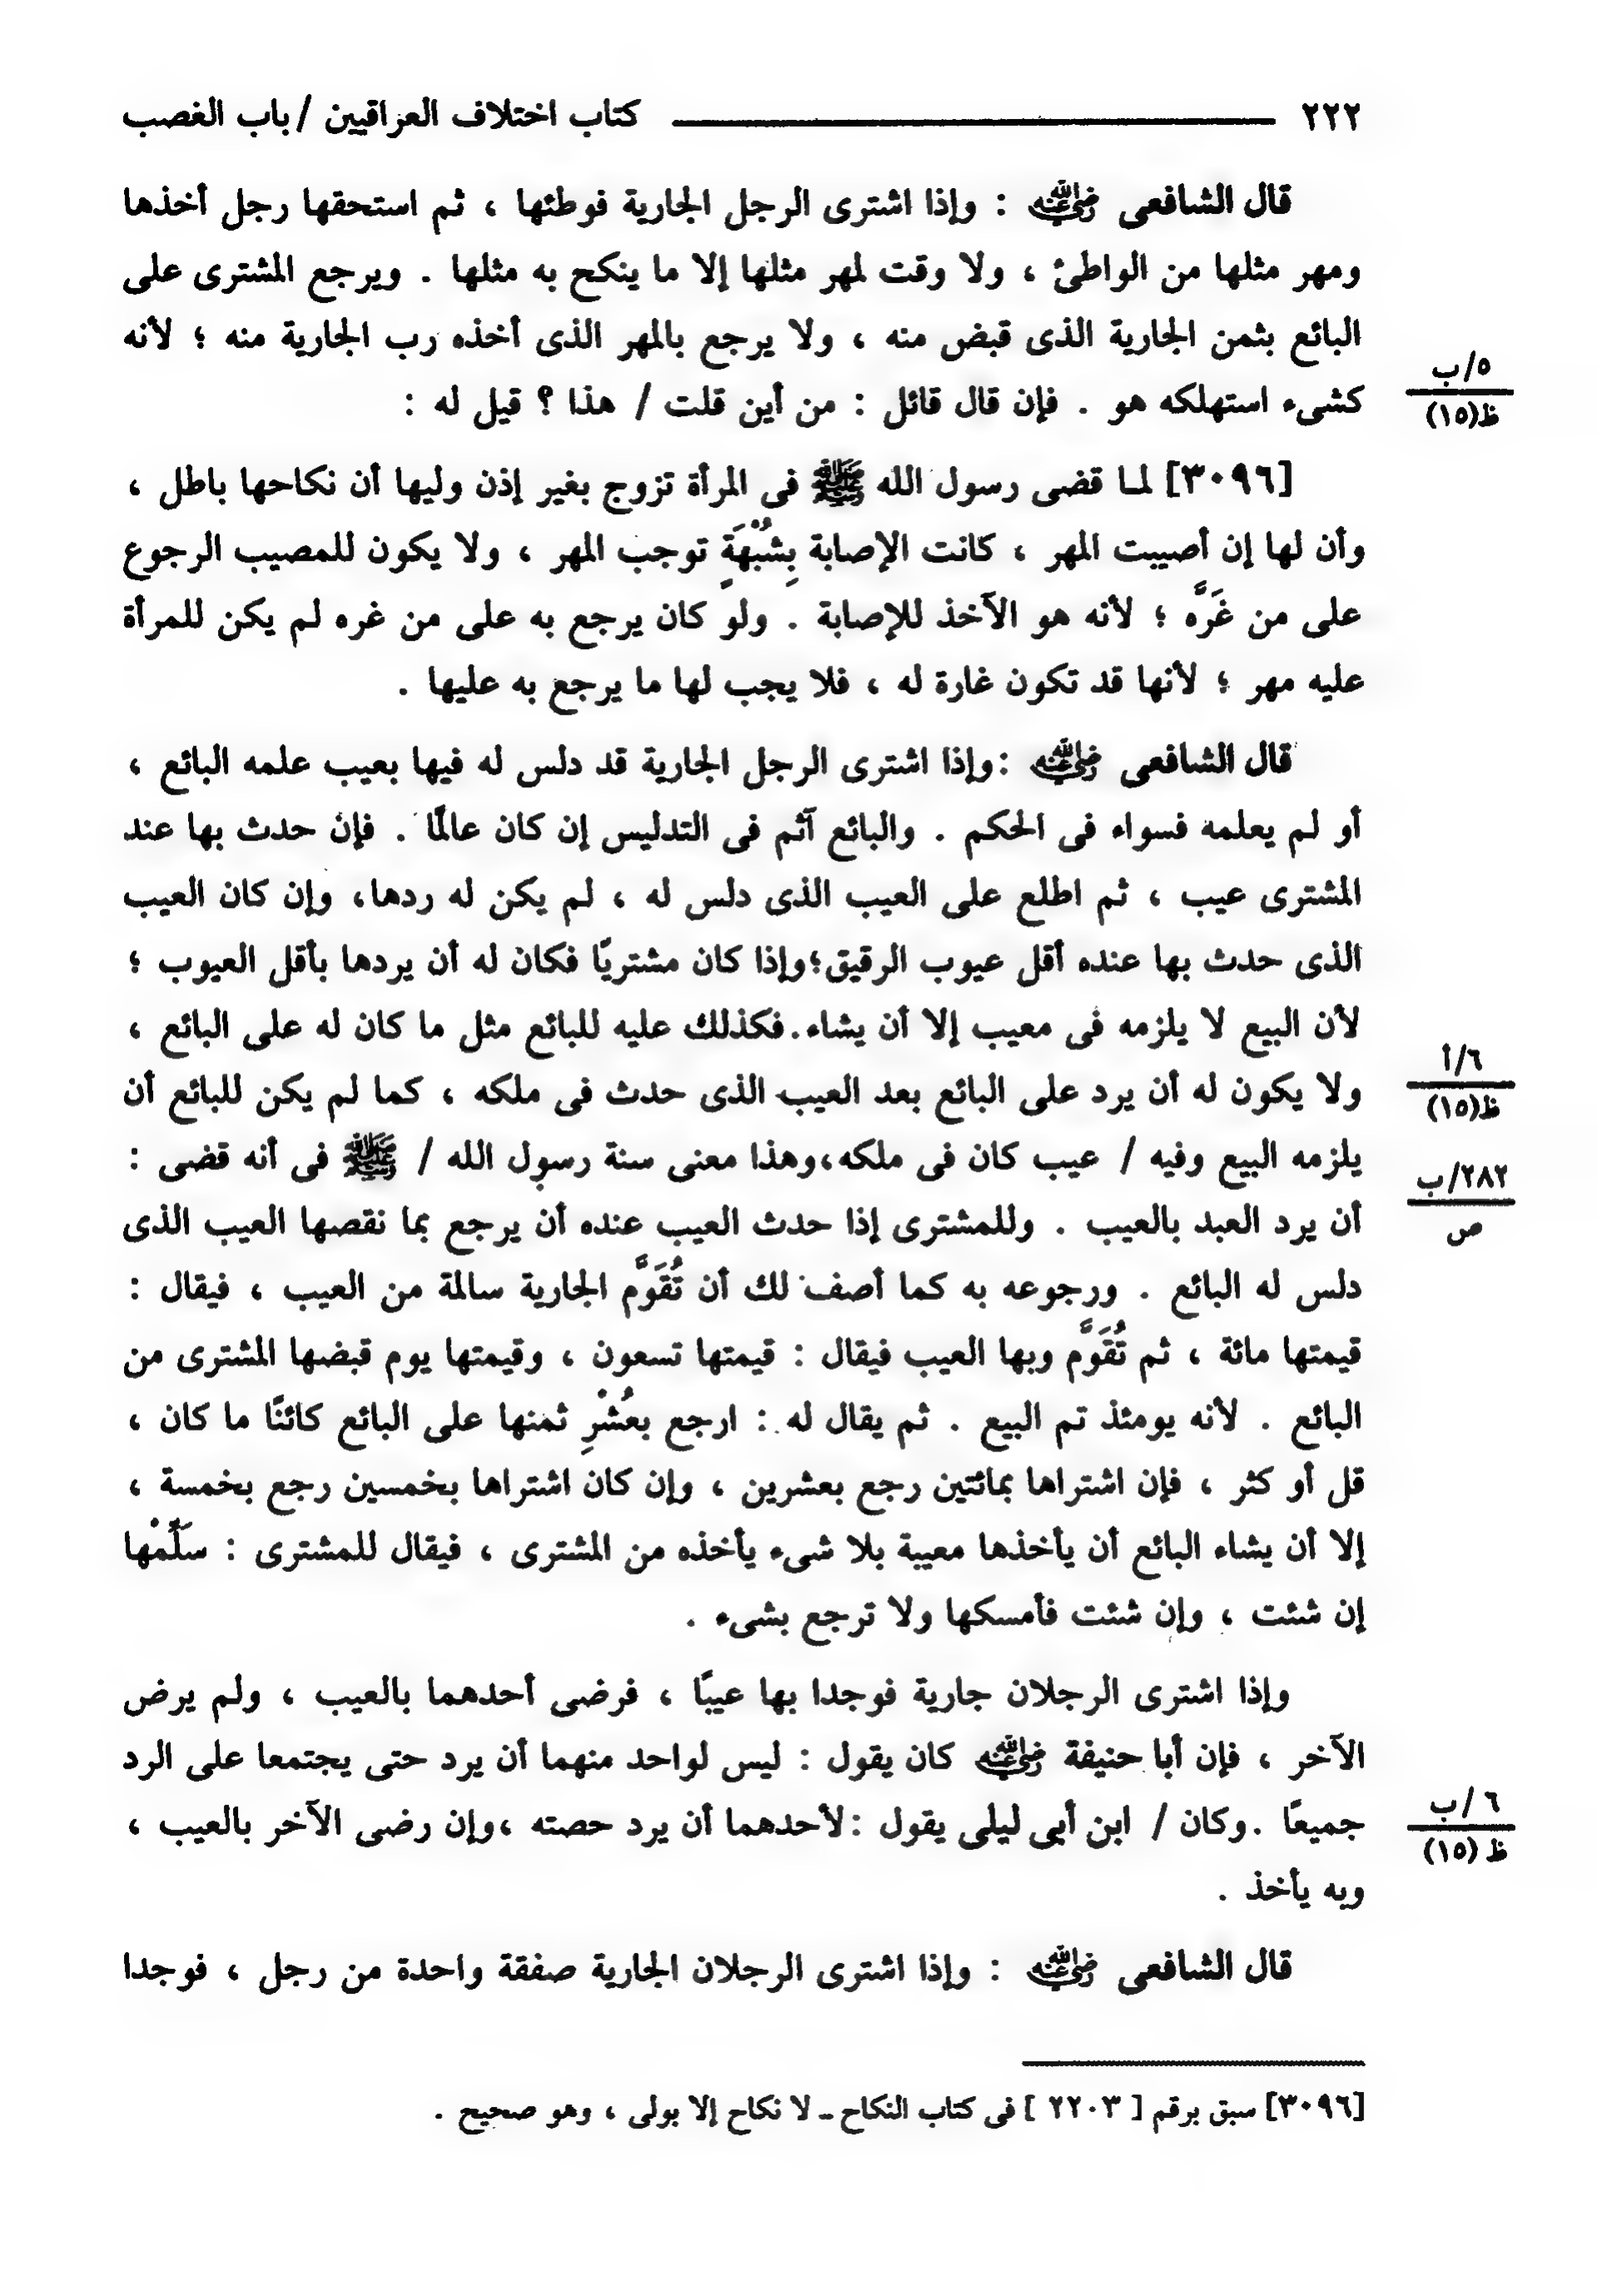 ٢٢٢ كتاب اختلاف العراقيين / باب الغصب
قال الشافعى رضي الله عنه : وإذا اشترى الرجل الجارية فوطئها ، ثم استحقها رجل أخذها
ومهر مثلها من الواطئ ، ولا وقت لمهر مثلها إلا ما ينكح به مثلها . ويرجع المشترى على
البائع بثمن الجارية الذى قبض منه ، ولا يرجع بالمهر الذى أخذه رب الجارية منه ؛ لأنه
كشىء استهلكه هو . فإن قال قائل : من أين قلت / هذا ؟ قيل له :
٥/ب
ظ(١٥)
[٣٠٩٦] لما قضى رسول الله ﷺ فى المرأة تزوج بغير إذن وليها أن نكاحها باطل ،
وأن لها إن أصيبت المهر ، كانت الإصابة بِشُبْهَةٍ توجب المهر ، ولا يكون للمصيب الرجوع
على من غَرَّه ؛ لأنه هو الآخذ للإصابة . ولو كان يرجع به على من غره لم يكن للمرأة
عليه مهر ؛ لأنها قد تكون غارة له ، فلا يجب لها ما يرجع به عليها .
قال الشافعى رضي الله عنه :وإذا اشترى الرجل الجارية قد دلس له فيها بعيب علمه البائع ،
أو لم يعلمه فسواء فى الحكم . والبائع آثم فى التدليس إن كان عالمًا . فإن حدث بها عند
المشترى عيب ، ثم اطلع على العيب الذى دلس له ، لم يكن له ردها، وإن كان العيب
الذى حدث بها عنده أقل عيوب الرقيق؛وإذا كان مشتريًا فكان له أن يردها بأقل العيوب ؛
لأن البيع لا يلزمه فى معيب إلا أن يشاء.فكذلك عليه للبائع مثل ما كان له على البائع ،
ولا يكون له أن يرد على البائع بعد العيب الذى حدث فى ملكه ، كما لم يكن للبائع أن
٦/أ
ظ(١٥)
يلزمه البيع وفيه / عيب كان فى ملكه،وهذا معنى سنة رسول الله / ﷺ فى أنه قضى :
٢٨٢/ب
ص
أن يرد العبد بالعيب . وللمشترى إذا حدث العيب عنده أن يرجع بما نقصها العيب الذى
دلس له البائع . ورجوعه به كما أصف لك أن تُقَوَّم الجارية سالمة من العيب ، فيقال :
قيمتها مائة ، ثم تُقَوَّم وبها العيب فيقال : قيمتها تسعون ، وقيمتها يوم قبضها المشترى من
البائع . لأنه يومئذ تم البيع . ثم يقال له : ارجع بعُشْرِ ثمنها على البائع كائنًا ما كان ،
قل أو كثر ، فإن اشتراها بمائتين رجع بعشرين ، وإن كان اشتراها بخمسين رجع بخمسة ،
إلا أن يشاء البائع أن يأخذها معيبة بلا شىء يأخذه من المشترى ، فيقال للمشترى : سَلِّمْها
إن شئت ، وإن شئت فأمسكها ولا ترجع بشىء .
وإذا اشترى الرجلان جارية فوجدا بها عيبًا ، فرضى أحدهما بالعيب ، ولم يرض
الآخر ، فإن أبا حنيفة رضي الله عنه كان يقول : ليس لواحد منهما أن يرد حتى يجتمعا على الرد
جميعًا .وكان / ابن أبى ليلى يقول :لأحدهما أن يرد حصته ،وإن رضى الآخر بالعيب ،
٦ /ب
ظ (١٥)
وبه يأخذ .
قال الشافعى رضي الله عنه : وإذا اشترى الرجلان الجارية صفقة واحدة من رجل ، فوجدا
[٣٠٩٦] سبق برقم [ ٢٢٠٣ ] فى كتاب النكاح ـ لا نكاح إلا بولى ، وهو صحيح .